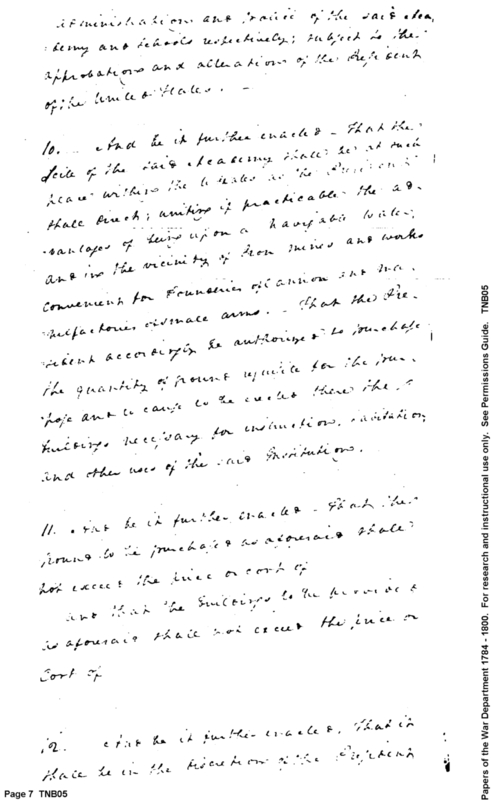 administration and police of the said Aca,
:demy and schools respectively; subject to the
approbation and alteration of the President
of the United States. –
10. – And be it further enacted – That the
Scite of the said Academy shall be at such
place within the U States as the President
shall direct; uniting if practicable the ad-
-vantages of being upon a navigable water,
and in the vicinity of Iron mines and works
convenient for Founderies of Cannon and ma-
nufactories of small arms. – That the Pre-
sident accordingly be authorized to purchase
the quantity of ground requisite for the pur-
pose and to cause to be erected there the
buildings necessary for instruction, habitation,
and other uses of the said Institution.
11. And be it further enacted – That the
ground to be purchased as aforesaid shall
not exceed the price or cost of
and that the Buildings to be provided
as aforesaid shall not exceed the price or
Cost of
12. And be it further enacted, That it
shall be in the discretion of the President
Page 7 TNB05
Papers of the War Department 1784 - 1800. For research and instructional use only. See Permissions Guide. TNB05